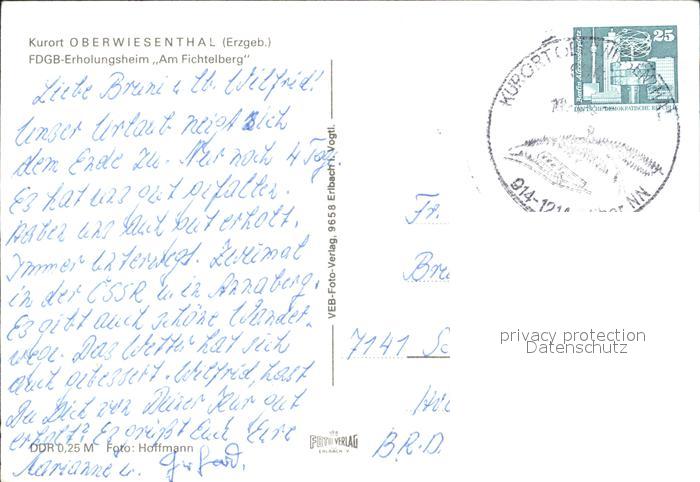 Kurort OBERWIESENTHAL (Erzgeb.)
FDGB-Erholungsheim „Am Fichtelberg"
Liebe Bruni u. lb. Wilfrid!
Unser Urlaub neigt sich
dem Ende zu. Nur noch 4 Tg.
Es hat uns gut gefallen.
Haben uns auch gut erholt.
Immer unterwegs. Zweimal
in der ČSSR u. in Annaberg.
Es gibt auch schöne Wander-
wege. Das Wetter hat sich
auch gebessert. Wilfrid, hast
Du Dich von Deiner Kur gut
erholt? Es grüßt Euch Eure
Marianne u. Gerhard.
DDR 0,25 M Foto: Hoffmann
VEB-Foto-Verlag, 9658 Erlbach i. Vogtl.
VEB
FOTO VERLAG
ERLBACH V.
25
Berlin, Alexanderplatz
DEUTSCHE DEMOKRATISCHE
KURORT
914-1214 NN
Fr.
7141
B.R.D.
privacy protection
Datenschutz